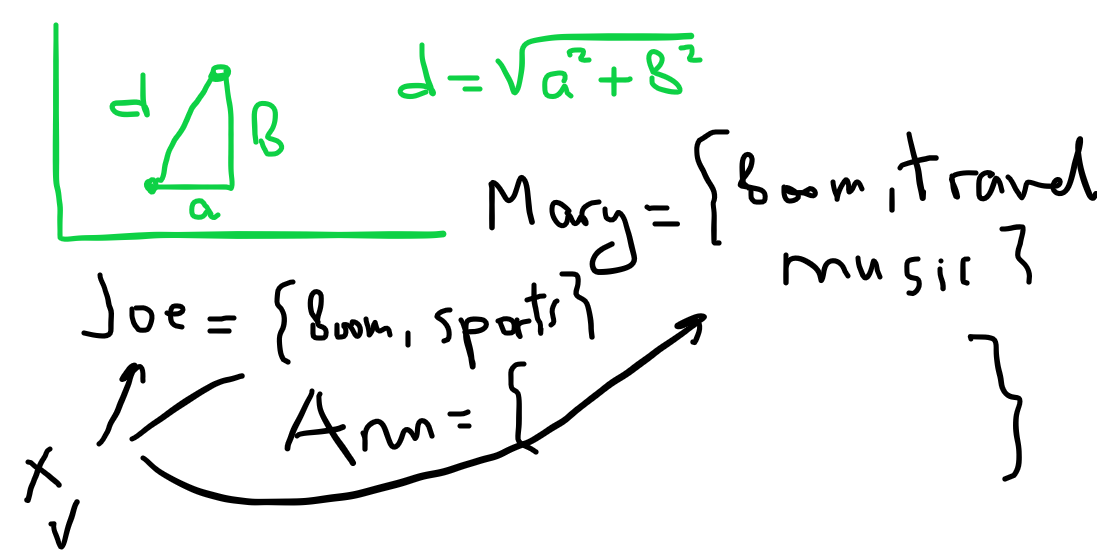 d = √a² + B²
d
B
a
Mary = {Boom, travel
music}
Joe = {Boom, sports}
Ann = { }
X
√